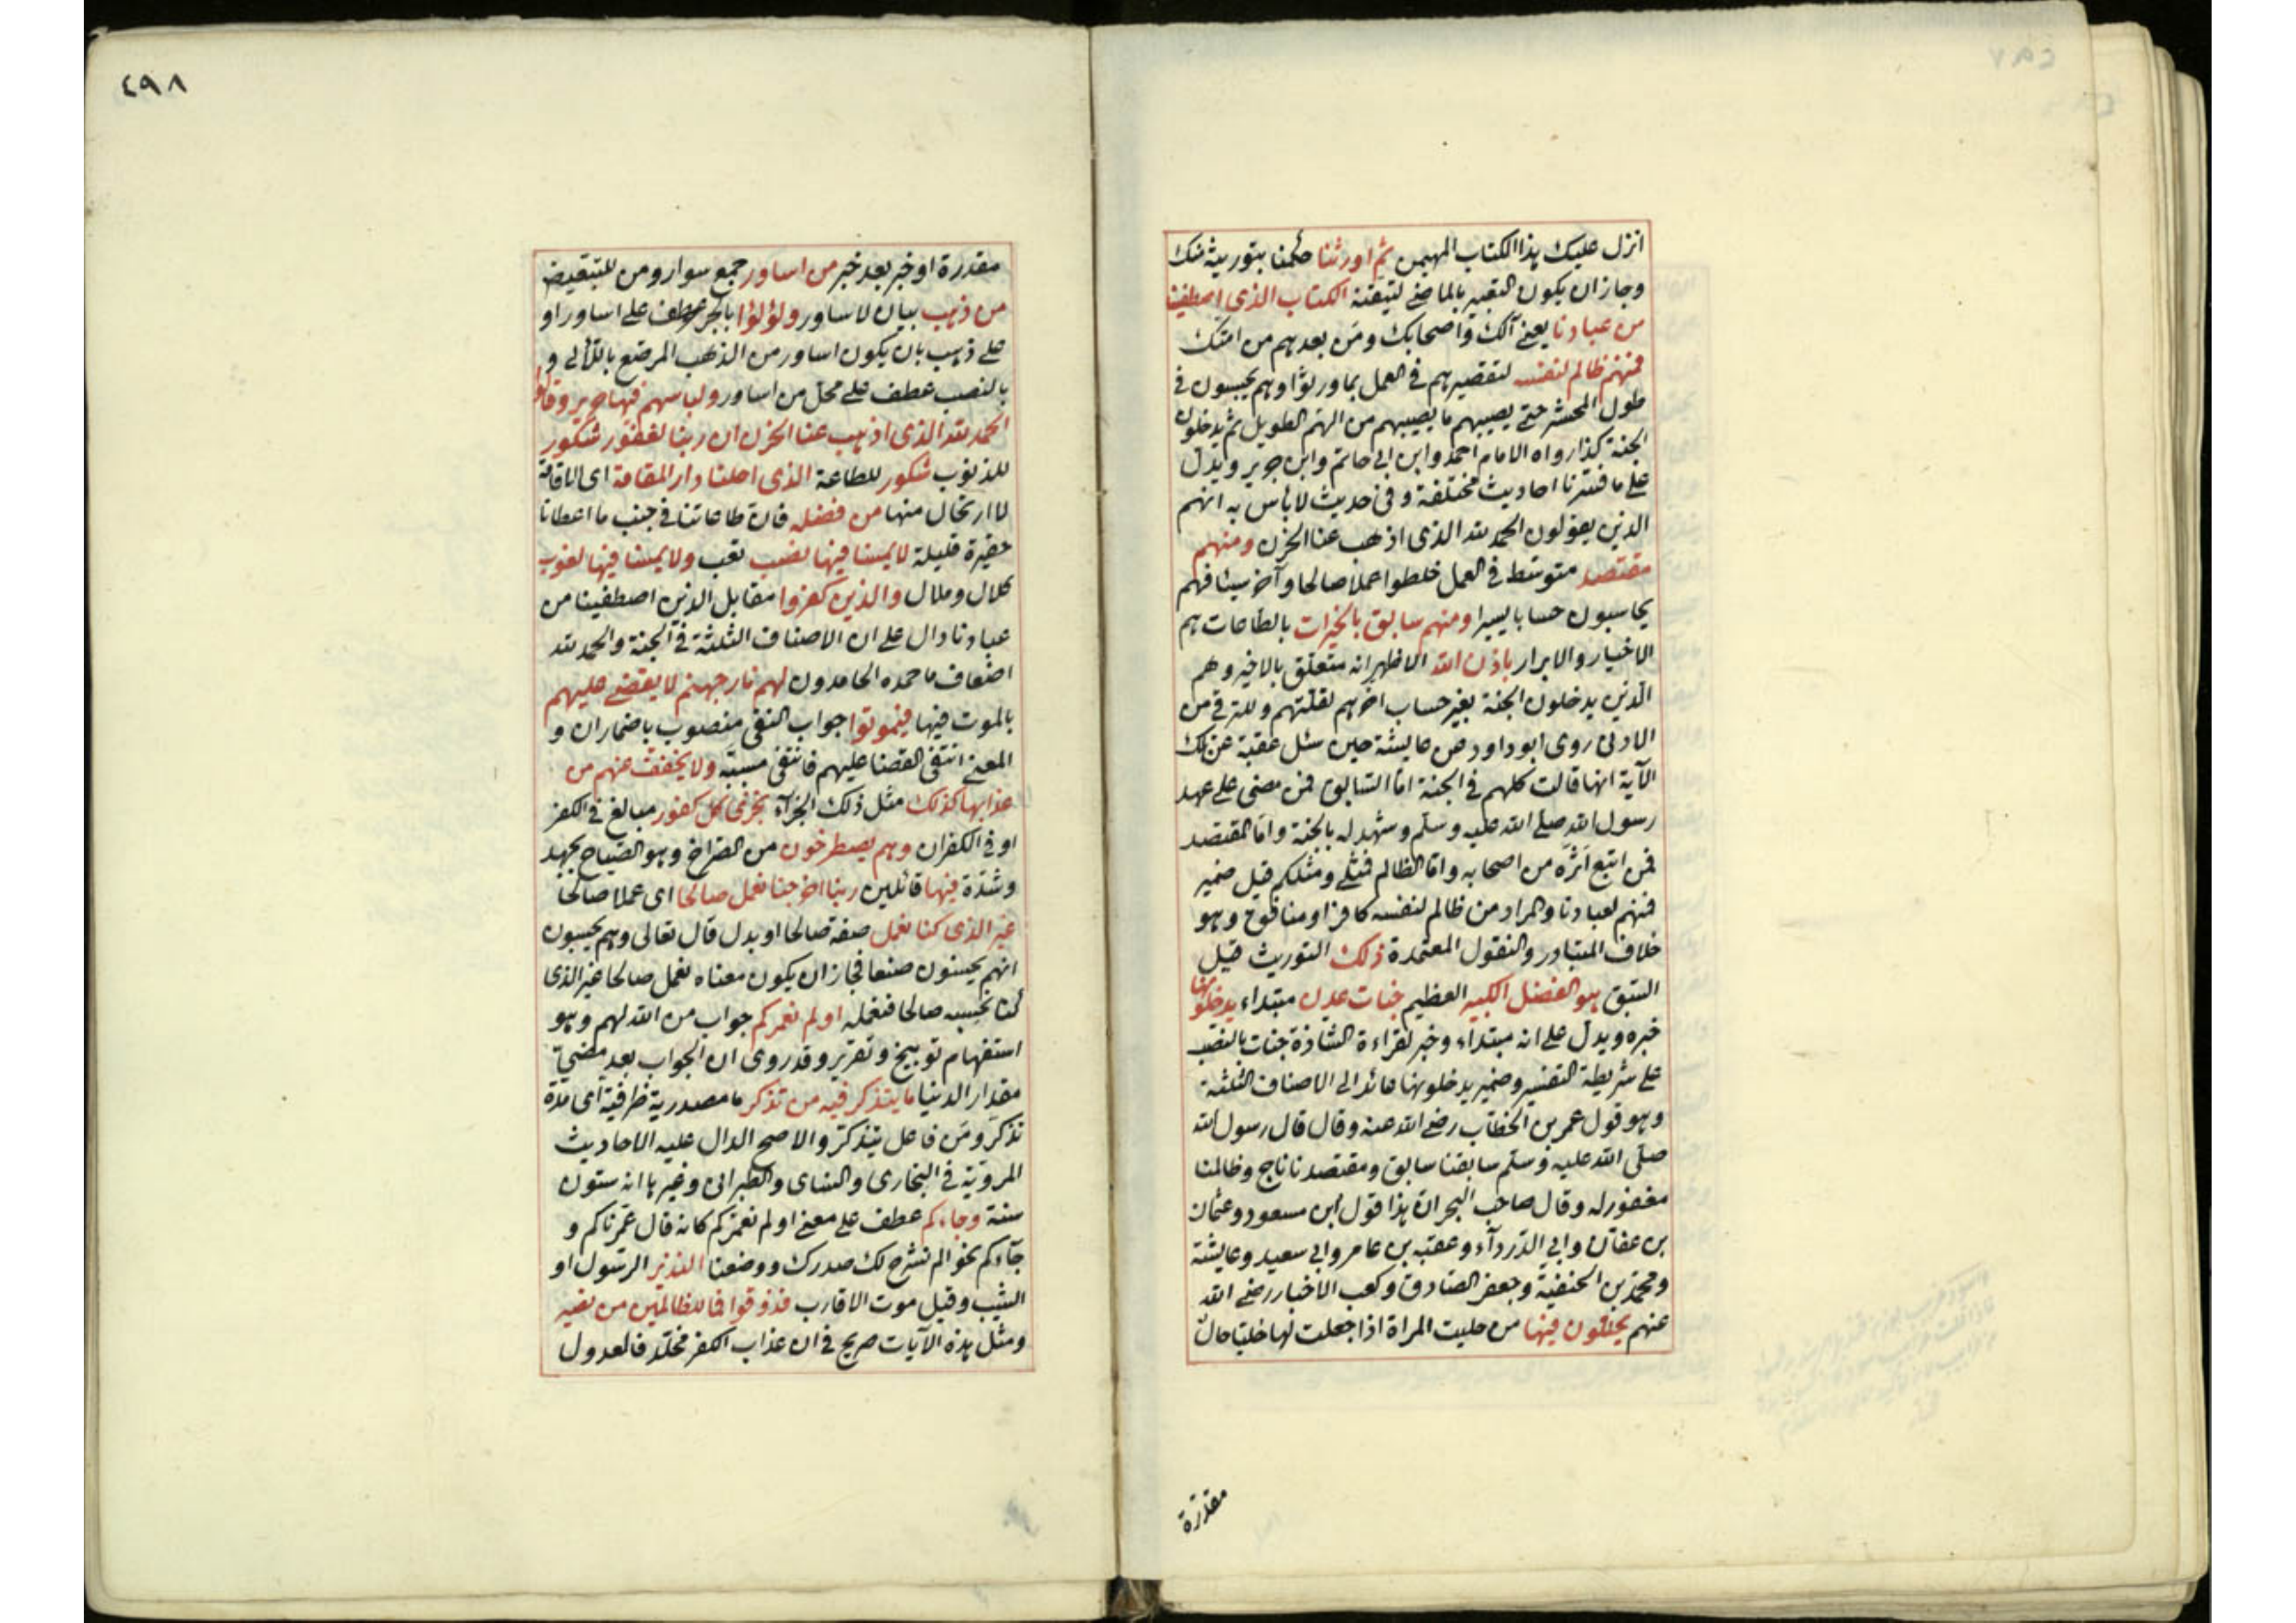 انزل عليك هذا الكتاب المهيمن ثم اورثنا حكمنا بتوريثه منك
وجاز ان يكون التعبير بالماضي لتيقنه الكتاب الذي اصطفينا
من عبادنا يعني آلك واصحابك ومن بعدهم من امتك
فمنهم ظالم لنفسه لتقصيرهم في العمل بما ورثوا وهم يحبسون في
طول المحشر حتى يصيبهم ما يصيبهم من الهم الطويل ثم يدخلون
الجنة كذا رواه الامام احمد وابن ابي حاتم وابن جرير ويدل
على ما فسرنا احاديث مختلفة وفي حديث لا بأس به انهم
الذين يقولون الحمد لله الذي اذهب عنا الحزن ومنهم
مقتصد متوسط في العمل خلطوا عملا صالحا وآخر سيئا فهم
يحاسبون حسابا يسيرا ومنهم سابق بالخيرات بالطاعات هم
الاخيار والابرار باذن الله الاظهر انه متعلق بالاخير وهم
الذين يدخلون الجنة بغير حساب اخرهم لقلتهم وللترقي من
الادنى روى ابو داود عن عايشة حين سئل عقبة عن تلك
الآية انها قالت كلهم في الجنة اما السابق فمن مضى على عهد
رسول الله صلى الله عليه وسلم وشهد له بالجنة واما المقتصد
فمن اتبع اثره من اصحابه واما الظالم فمثلي ومثلكم قيل ضمير
فمنهم لعبادنا والمراد من ظالم لنفسه كافر او منافق وهو
خلاف المتبادر والنقول المعتمدة ذلك التوريث قيل
السبق هو الفضل الكبير العظيم جنات عدن مبتداء يدخلونها
خبره ويدل على انه مبتداء وخبر لقراءة الشاذة جنات بالنصب
على شريطة التفسير وضمير يدخلونها عائد الى الاصناف الثلثة
وهو قول عمر بن الخطاب رضي الله عنه وقال قال رسول الله
صلى الله عليه وسلم سابقنا سابق ومقتصدنا ناج وظالمنا
مغفور له وقال صاحب البحر ان هذا قول ابن مسعود وعثمان
بن عفان وابي الدرداء وعقبه بن عامر وابي سعيد وعايشة
ومحمد بن الحنفية وجعفر الصادق وكعب الاخبار رضي الله
عنهم يحلون فيها من حليت المراة اذا جعلت لها حليا حال
مقدرة
٤٩٨
مقدرة او خبر بعد خبر من اساور جمع سوار ومن للتبعيض
من ذهب بيان لاساور ولؤلؤا بالجر عطف على اساور او
على ذهب بان يكون اساور من الذهب المرصع باللآلي و
بالنصب عطف على محل من اساور ولباسهم فيها حرير وقالوا
الحمد لله الذي اذهب عنا الحزن ان ربنا لغفور شكور
للذنوب شكور للطاعة الذي احلنا دار المقامة اي الاقامة
لا ارتحال منها من فضله فان طاعاتنا في جنب ما اعطانا
حقيرة قليلة لا يمسنا فيها نصب تعب ولا يمسنا فيها لغوب
كلال وملال والذين كفروا مقابل الذين اصطفينا من
عبادنا دال على ان الاصناف الثلثة في الجنة والحمد لله
اضعاف ما حمده الحامدون لهم نار جهنم لا يقضى عليهم
بالموت فيها فيموتوا جواب النفي منصوب باضمار ان و
المعنى انتفى القضا عليهم فانتفى مسببه ولا يخفف عنهم من
عذابها كذلك مثل ذلك الجزآء نجزي كل كفور مبالغ في الكفر
او في الكفران وهم يصطرخون من الصراخ وهو الصياح بجهد
وشدة فيها قائلين ربنا اخرجنا نعمل صالحا اي عملا صالحا
غير الذي كنا نعمل صفة صالحا او بدل قال تعالى وهم يحسبون
انهم يحسنون صنعا فجاز ان يكون معناه نعمل صالحا غير الذي
كنا نحسبه صالحا فنعمله اولم نعمركم جواب من الله لهم وهو
استفهام توبيخ وتقرير وقد روي ان الجواب بعد مضي
مقدار الدنيا ما يتذكر فيه من تذكر ما مصدرية ظرفية اي مدة
تذكر ومن فاعل يتذكر والاصح الدال عليه الاحاديث
المروية في البخاري والنساي والطبراني وغيرها انه ستون
سنة وجاءكم عطف على معنى اولم نعمركم كانه قال عمرناكم و
جآءكم نحو الم نشرح لك صدرك ووضعنا النذير الرسول او
الشيب وقيل موت الاقارب فذوقوا فما للظالمين من نصير
ومثل هذه الآيات صريح في ان عذاب الكفر مخلد فالعدول